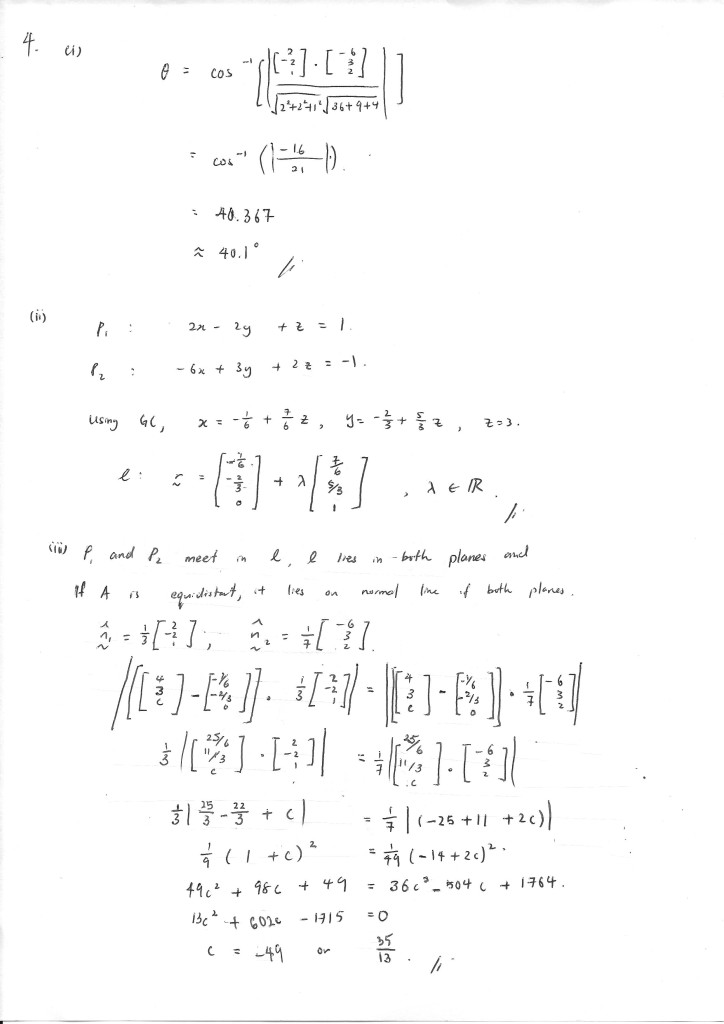 4. (i) θ = cos⁻¹ [ | [2 -2 1] · [-6 3 2] / √2²+2²+1² √36+9+4 | ]
= cos⁻¹ ( | -16 / 21 | ).
= 40.367
≈ 40.1°
(ii) P₁ : 2x - 2y + z = 1.
P₂ : -6x + 3y + 2z = -1.
Using GC, x = -1/6 + 7/6 z, y = -2/3 + 5/3 z, z=3.
l : r = [-1/6 -2/3 0] + λ [7/6 5/3 1], λ ∈ ℝ.
(iii) P₁ and P₂ meet in l, l lies in both planes and
If A is equidistant, it lies on normal line of both planes.
n̂₁ = 1/3 [2 -2 1], n̂₂ = 1/7 [-6 3 2].
| [[4 3 c] - [-1/6 -2/3 0]] · 1/3 [2 -2 1] | = | [[4 3 c] - [-1/6 -2/3 0]] · 1/7 [-6 3 2] |
1/3 | [25/6 11/3 c] · [2 -2 1] | = 1/7 | [25/6 11/3 c] · [-6 3 2] |
1/3 | 25/3 - 22/3 + c | = 1/7 | (-25 + 11 + 2c) |
1/9 (1 + c)² = 1/49 (-14 + 2c)².
49c² + 98c + 49 = 36c² - 504c + 1764.
13c² + 602c - 1715 = 0
c = -49 or 35/13.